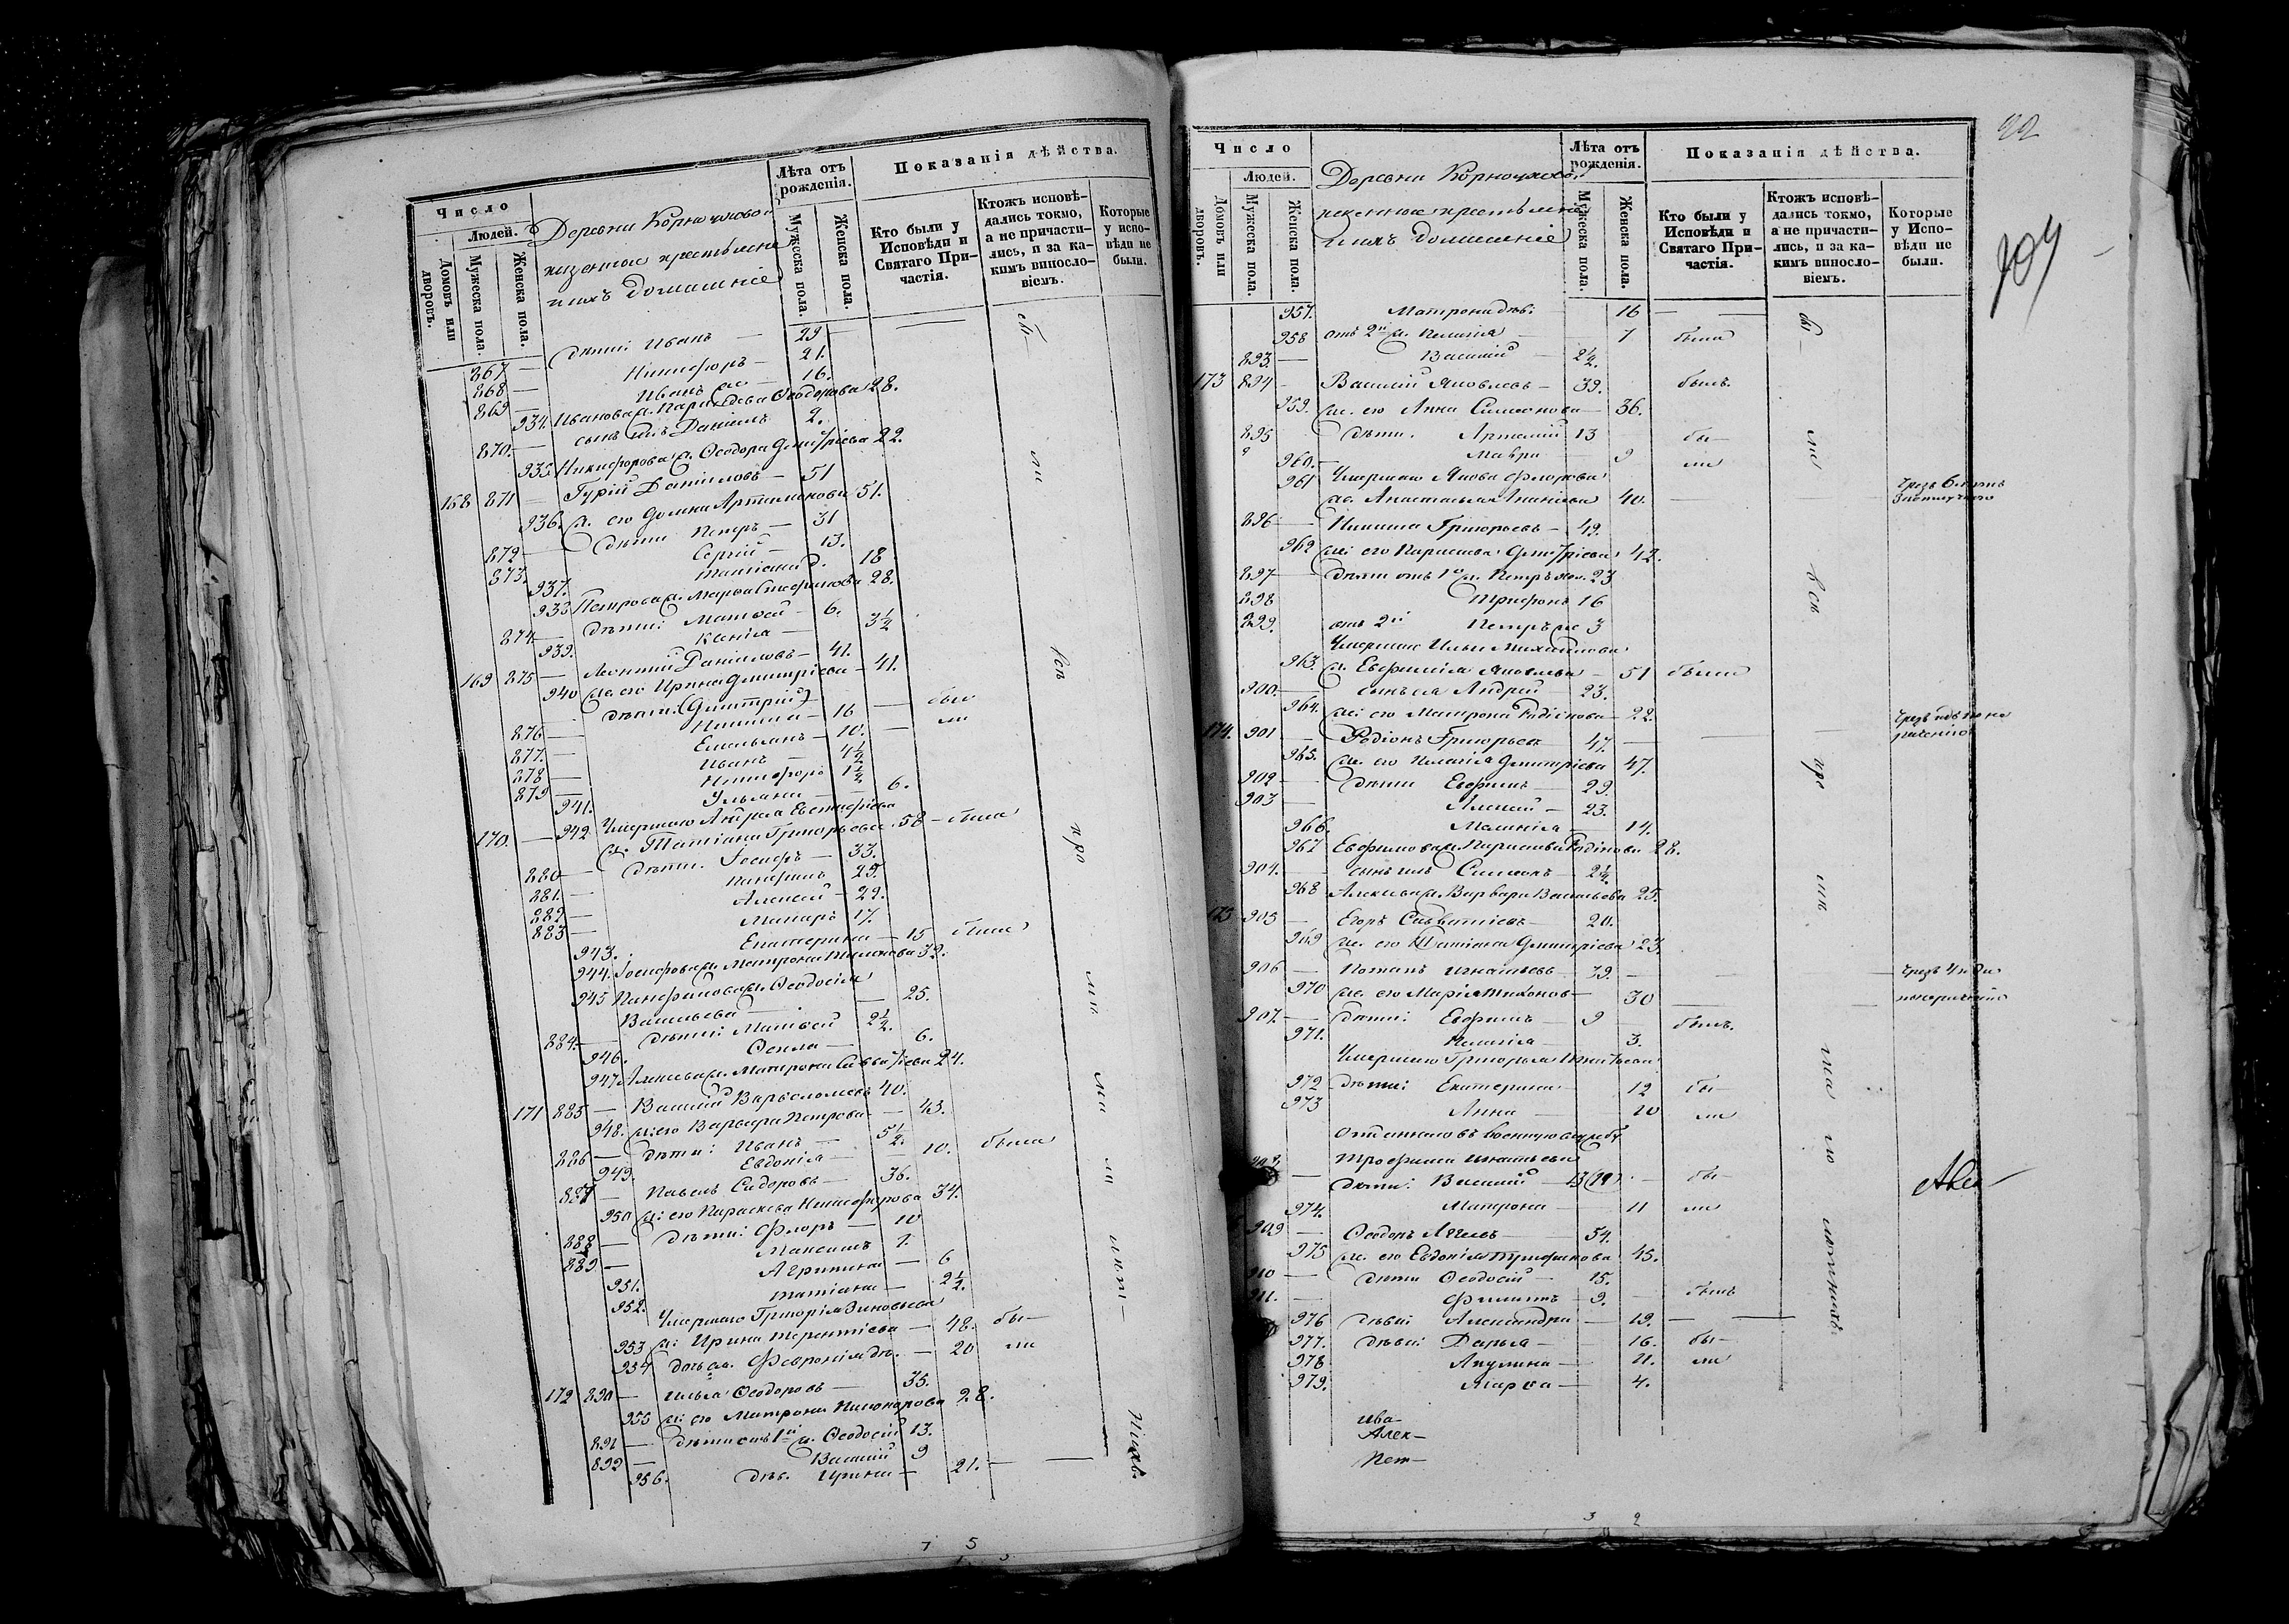 Число
Людей.
Домовъ или дворовъ.
Мужеска пола.
Женска пола.
казенные крестьяне
и ихъ домашніе
Лѣта отъ рожденія.
Мужеска пола.
Женска пола.
Показанія дѣйства.
Кто были у Исповѣди и Святаго Причастія.
Ктожъ исповѣдались токмо, а не причастились, и за какимъ винословіемъ.
Которые у исповѣди не были.
867 — дѣти: Иванъ — 29
868 — Никифоръ — 21.
869 — Иванъ — 16.
934. Иванова ж. Параскева Ѳеодорова 28.
870. — сынъ ихъ Даніилъ 2.
935 Никифорова ж. Ѳеодора Дмитріева 22.
168 871 — Гурій Даніиловъ — 51
936. ж. его Домна Артамонова 51.
872 — дѣти Петръ — 31
873. Сергій — 13.
937. Татіана д. 18
938 Петрова ж. Марѳа 28.
874 — дѣти: Матвей — 6.
939. Ксенія — 3½
169 875 — Леонтій Даніиловъ — 41.
940 ж. его Ирина Дмитріева — 41.
дѣти: (Дмитрій)
876 — Никита — 16 — бы
877. — Емельянъ — 10. — ли
878 — Иванъ — 4½
879 — Никифоръ 1½
941. Ульяна — 6.
Умершаго Андрея Евстафіева
170. — 942 ж. Татіана Григорьева 58 — была
880 — дѣти. Іосифъ — 33.
881. — Панфилъ 25.
882 — Алексей — 22.
883 — Макаръ 17.
943. Екатерина — 15 была
944. Іосифова ж. Матрона 32.
945 Панфилова ж. Ѳеодосія
Васильева — 25.
884. — дѣти: Матвей 2½
946. Ѳекла — 6.
947 Алексеева ж. Матрона Савватіева 24.
171 885 — Василій Варѳоломеевъ 40.
948. ж. его Варвара Петрова — 43.
886 — дѣти: Иванъ — 5½
949. Евдокія — 10. была
887 — Павелъ Сидоровъ — 36.
950 ж: его Параскева Никифорова 34.
888 — дѣти: Флоръ — 10
889 — Максимъ 7.
951. Агрипина — 6
952. Татіана — 2½
Умершаго Григорія Зиновьева
953 ж: Ирина Терентіева — 48. бы—
954 дочь ея Февронія дѣ. — 20 ли
172 890 — Илья Ѳеодоровъ — 35.
955 ж: его Матрона Никонорова 28.
891 — дѣти отъ 1й ж. Ѳеодосій 13.
892 — Василій 9
956. дѣв. Ирина — 21. —
22
Число
Людей.
Домовъ или дворовъ.
Мужеска пола.
Женска пола.
казенные крестьяне
и ихъ домашніе
Лѣта отъ рожденія.
Мужеска пола.
Женска пола.
Показанія дѣйства.
Кто были у Исповѣди и Святаго Причастія.
Ктожъ исповѣдались токмо, а не причастились, и за какимъ винословіемъ.
Которые у Исповѣди не были.
957. Матрона дѣв. 16 —
958 отъ 2й ж. Пелагія — 7 была
893 — Василій — 2½.
173 894 — Василій Яковлевъ — 39. былъ.
959. ж. его Анна Симеонова — 36.
895 дѣти. Артемій 13 бы—
960. — Мавра 9 ли
961 Умершаго Якова Флорова
ж. Анастасія Ананіева 40. —
896 — Никита Григорьевъ — 49.
962 ж: его Параскева Дмитріева 42.
897 — дѣти отъ 1й ж. Петръ 23
898 Трифонъ 16
899. отъ 2й Петръ 3
Умершаго Ильи Михайлова
963. ж. Евфимія Яковлева — 51 была
900. — сынъ ея Андрей — 23.
964. ж: его Матрона Родіонова — 22.
174. 901 — Родіонъ Григорьевъ 47. —
965. ж. его Пелагія Дмитріева 47.
902 — дѣти Евфимъ 29.
903 — Алексей — 23.
966. Меланія 14.
967 Евфимова ж. Параскева Родіонова 28.
904. — сынъ ихъ Симеонъ — 2½.
968 Алексеева ж. Варвара Васильева 25.
175 905 — Егоръ Савватіевъ — 20.
969 ж. его Татіана Дмитріева 23.
906 — Потапъ Игнатьевъ 39. —
970 ж. его Марія Тихонов— 30
907. — дѣти: Евфимъ — 9 былъ.
971. Пелагія — 3.
Умершаго Григорья Игнатьева
972 дѣти: Екатерина — 12 бы—
973 Анна — 10 ли
Отданнаго въ военную службу
Трофима Игнатьева
— дѣти: Василій — 13 бы—
974. Матрона — 11 ли
909 — Ѳеодоръ — 54.
975 ж. его Евдокія Трифонова 45.
910 — дѣти Ѳеодосій — 15.
911. — Филиппъ — 9. былъ
976 дѣви: Александра — 19. —
977. дѣви: Дарья — 16. бы—
978 Акулина — 11. ли
979. Марѳа — 4.
Ива—
Алек—
Пет—